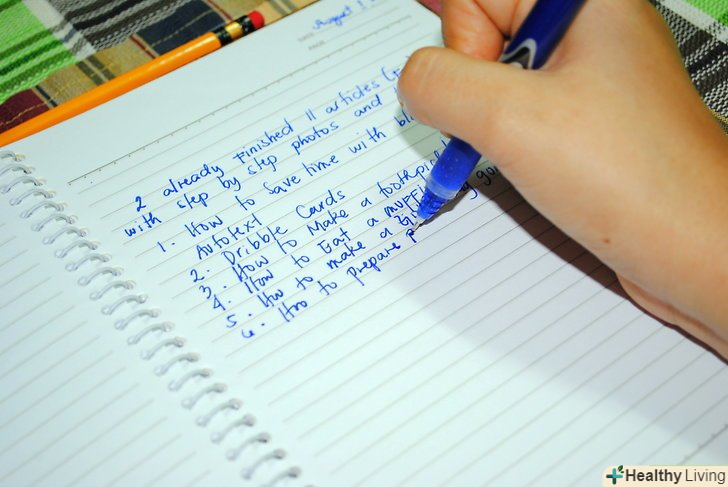 August
DATE
PAGE
2 already Finished 11 articles
with step by step photos and
1. How to Save time with
Autotext
2. Dribble Cards
3. How to Make a
4. How to Eat a
5. Hw to make a
6. Hro to prepare P
Healthy Living